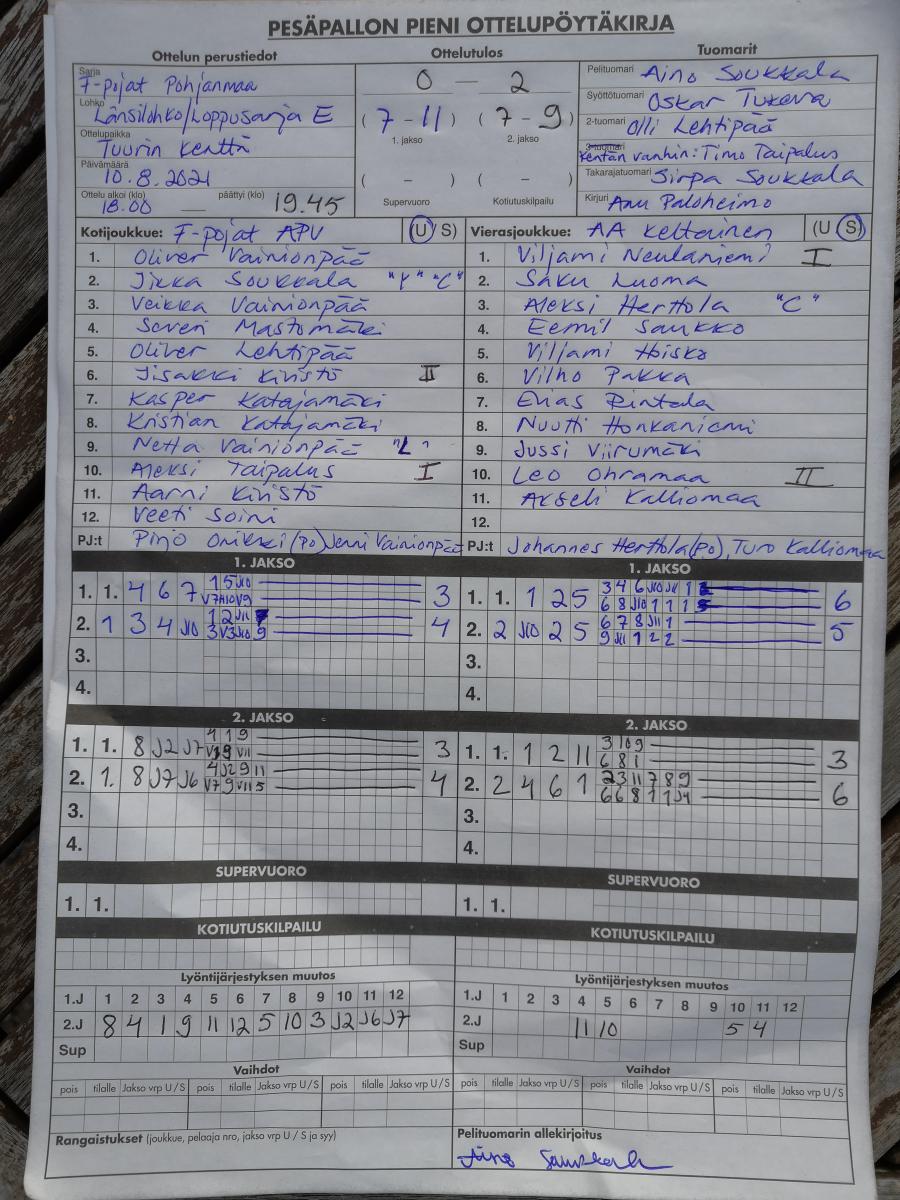 PESÄPALLON PIENI OTTELUPÖYTÄKIRJA
Ottelun perustiedot
Sarja F-pojat Pohjanmaa
Lohko Länsilohko/Loppusarja E
Ottelupaikka Tuurin kenttä
Päivämäärä 10.8.2021
Ottelu alkoi (klo) 18.00 — päättyi (klo) 19.45
Ottelutulos
0 — 2
(7-11) (7-9)
1. jakso 2. jakso
( – ) ( – )
Supervuoro Kotiutuskilpailu
Tuomarit
Pelituomari Aino Soukkala
Syöttötuomari Oskar
2-tuomari Olli Lehtipää
3-tuomari Kentän vanhin: Timo Taipalus
Takarajatuomari Sirpa Soukkala
Kirjuri Anu Paloheimo
Kotijoukkue: F-pojat APV (U/S)
1. Oliver Vainionpää
2. Jukka Soukkala "Y" "C"
3. Veikka Vainionpää
4. Severi Mastomäki
5. Oliver Lehtipää
6. Iisakki Kivistö II
7. Kasper Katajamäki
8. Kristian Katajamäki
9. Netta Vainionpää "L"
10. Aleksi Taipalus I
11. Aarni Kivistö
12. Veeti Soini
PJ:t Pinjo (PJ) Jenni Vainionpää
Vierasjoukkue: AA keltainen (U S)
1. Viljami Neulaniemi I
2. Saku Luoma
3. Aleksi Herttola "C"
4. Eemil Saukko
5. Viljami Hoisko
6. Vilho Pakka
7. Elias Rintala
8. Nuutti Honkaniemi
9. Jussi Viirumäki
10. Leo Ohramaa II
11. Akseli Kalliomaa
12.
PJ:t Johannes Herttola (PJ), Turo Kalliomaa
1. JAKSO
1. 1. 4 6 7 1 5 J10 3
V7 A10 V9
2. 1 3 4 J10 1 2 J11 4
3 V3 J10 9
3.
4.
1. JAKSO
1. 1. 1 2 5 3 4 6 J10 J11 1 6
6 8 J10 1 1 1
2. 2 J10 2 5 6 7 8 J11 1 5
9 J11 1 2 2
3.
4.
2. JAKSO
1. 1. 8 J2 J7 4 1 9 3
V11
2. 1. 8 J7 J6 4 J2 9 11 4
V7 9 V11 5
3.
4.
2. JAKSO
1. 1. 1 2 11 3 10 9 3
6 8 1
2. 2 4 6 1 2 3 11 7 8 9 6
6 6 8 1 1 J4
3.
4.
SUPERVUORO
1. 1.
SUPERVUORO
1. 1.
KOTIUTUSKILPAILU
KOTIUTUSKILPAILU
Lyöntijärjestyksen muutos
1.J 1 2 3 4 5 6 7 8 9 10 11 12
2.J 8 4 1 9 11 12 5 10 3 J2 J6 J7
Sup
Lyöntijärjestyksen muutos
1.J 1 2 3 4 5 6 7 8 9 10 11 12
2.J 11 10 5 4
Sup
Vaihdot
pois tilalle Jakso vrp U/S pois tilalle Jakso vrp U/S pois tilalle Jakso vrp U/S
Vaihdot
pois tilalle Jakso vrp U/S pois tilalle Jakso vrp U/S pois tilalle Jakso vrp U/S
Rangaistukset (joukkue, pelaaja nro, jakso vrp U / S ja syy)
Pelituomarin allekirjoitus
Aino Soukkala